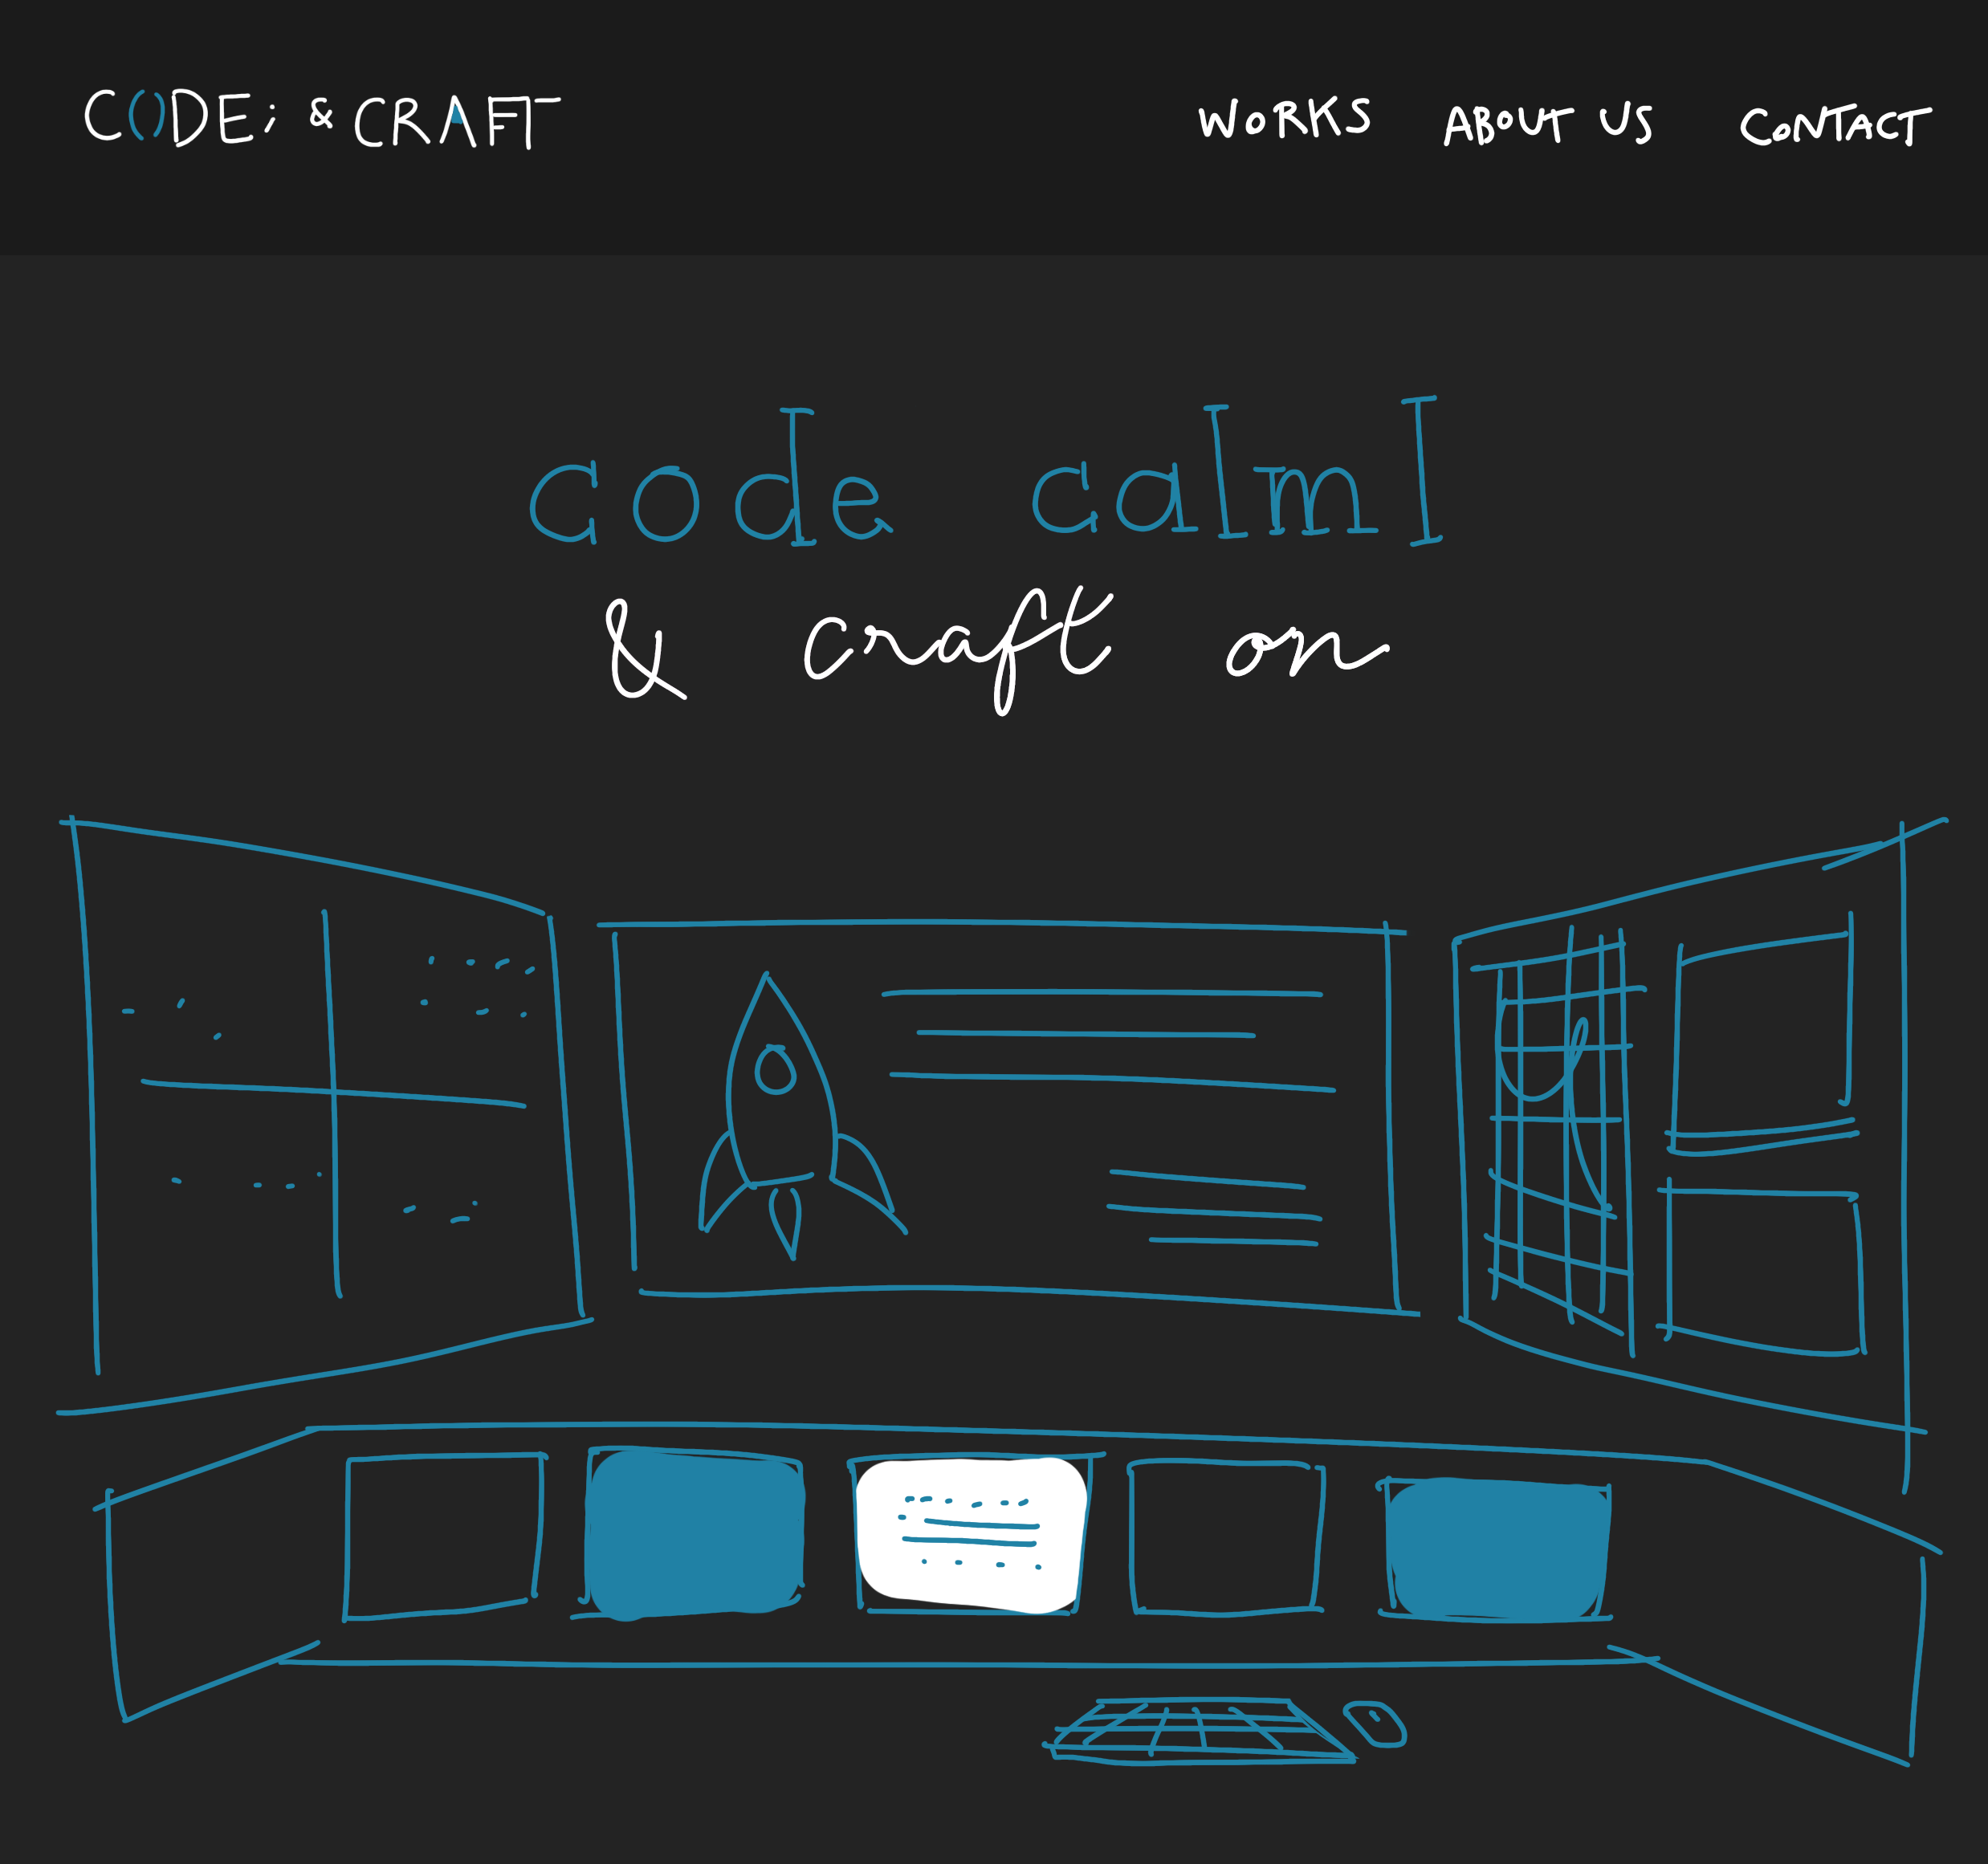 C()DE; & CRAFT
WORKS ABOUT US CONTACT
code calm|
& craft on